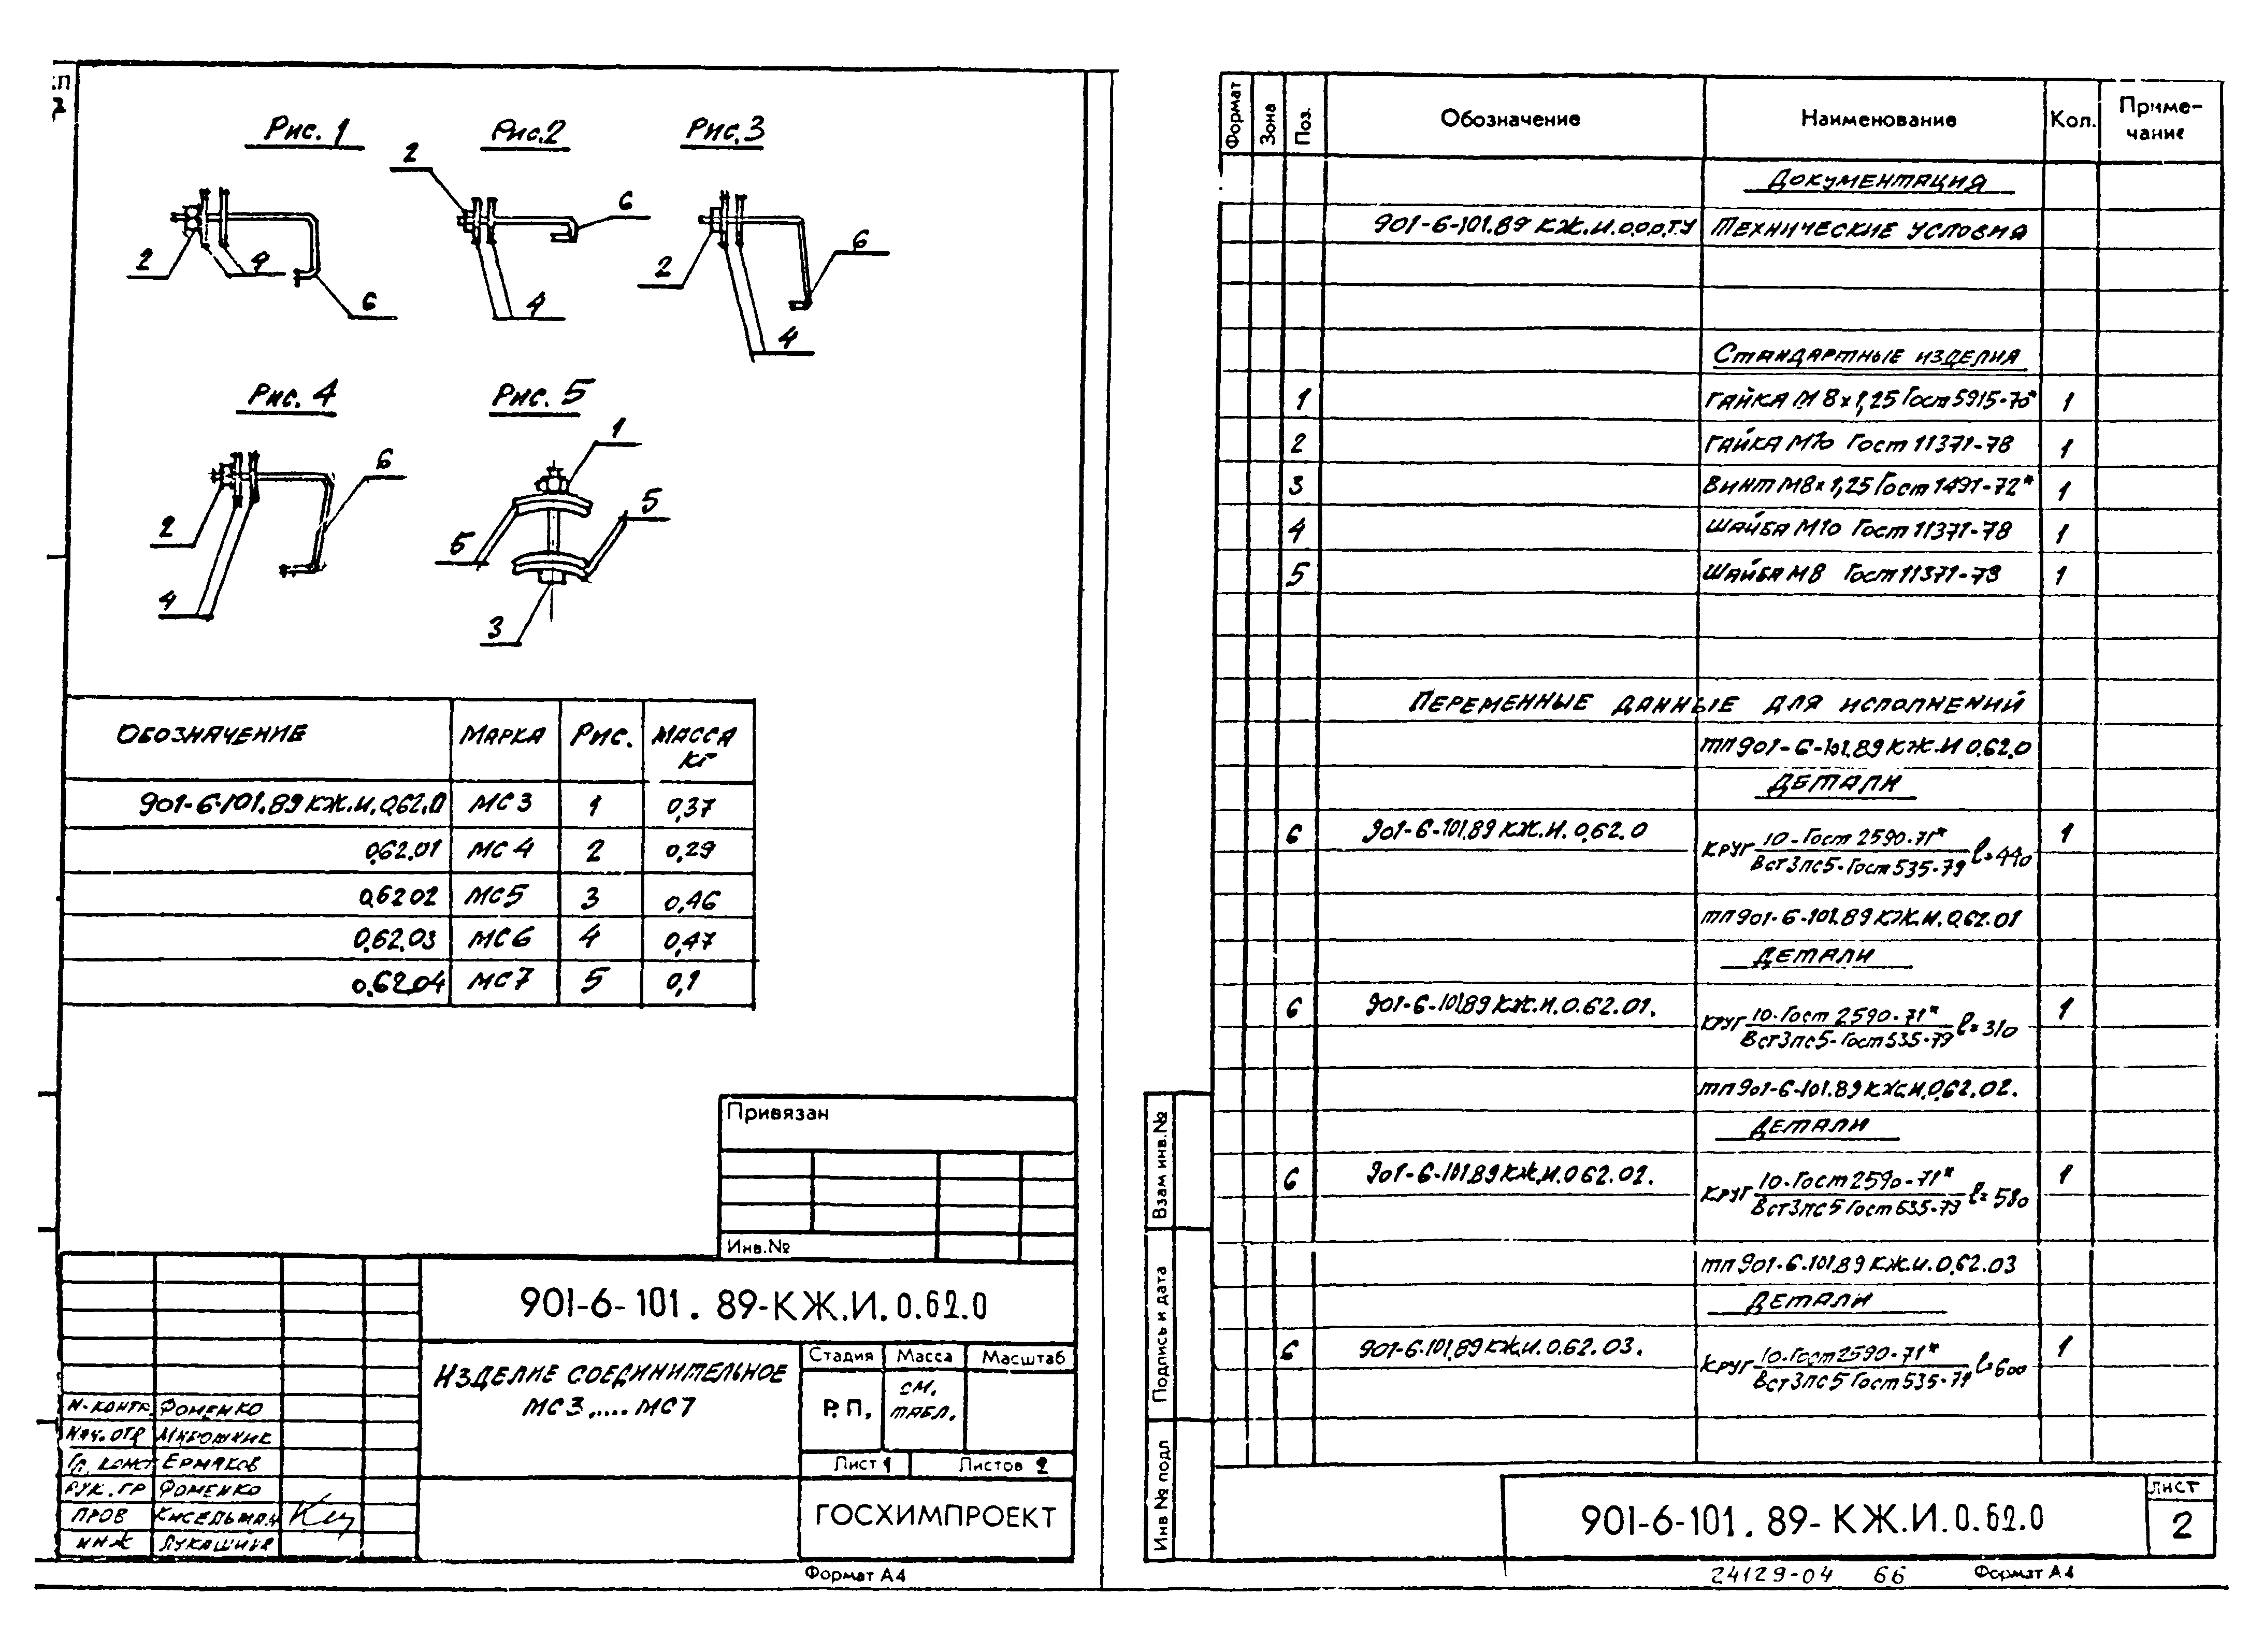 Рис. 1
Рис.2
Рис.3
2
2
4
6
4
6
2
4
6
Рис. 4
Рис. 5
6
2
4
1
5
5
3
Обозначение Марка Рис. Масса кг
901-6-101.89 КЖ.И.0.62.0 МС3 1 0,37
0.62.01 МС4 2 0,29
0.62 02 МС5 3 0,46
0.62.03 МС6 4 0,47
0.62.04 МС7 5 0,1
Привязан
Инв.№
901-6-101. 89-КЖ.И.0.62.0
Изделие соединительное
МС3,.... МС7
Стадия Масса Масштаб
Р.П. см. табл.
Лист 1 Листов 2
ГОСХИМПРОЕКТ
Н.контр. Фоменко
Нач.отд
Гл. конст Ермаков
Рук. гр Фоменко
Пров Кисельман
Инж Лукашина
Формат А4
Формат Зона Поз. Обозначение Наименование Кол. Приме-чание
Документация
901-6-101.89 КЖ.И.0.0.0.ТУ Технические условия
Стандартные изделия
1 Гайка М8х1,25 Гост 5915-70* 1
2 Гайка М10 Гост 11371-78 1
3 Винт М8х1,25 Гост 1491-72* 1
4 Шайба М10 Гост 11371-78 1
5 Шайба М8 Гост 11371-78 1
Переменные данные для исполнений
тп901-6-101.89 КЖ.И 0.62.0
Детали
6 901-6-101.89 КЖ.И. 0.62.0 Круг 10-Гост 2590-71* / Вст3пс5-Гост 535-79 ℓ=440 1
тп901-6-101.89 КЖ.И.0.62.01
Детали
6 901-6-101.89 КЖ.И.0.62.01. Круг 10-Гост 2590-71* / Вст3пс5-Гост 535-79 ℓ=310 1
тп901-6-101.89 КЖ.И.0.62.02.
Детали
6 901-6-101.89 КЖ.И.0 62.02. Круг 10-Гост 2590-71* / Вст3пс5 Гост 535-79 ℓ=580 1
тп901-6-101.89 КЖ.И.0.62.03
Детали
6 901-6-101.89 КЖ.И.0.62.03. Круг 10-Гост 2590-71* / Вст3пс5 Гост 535-79 ℓ=600 1
Взам инв.№
Подпись и дата
Инв № подл
901-6-101. 89-КЖ.И.0.62.0
Лист
2
24129-04 66 Формат А4